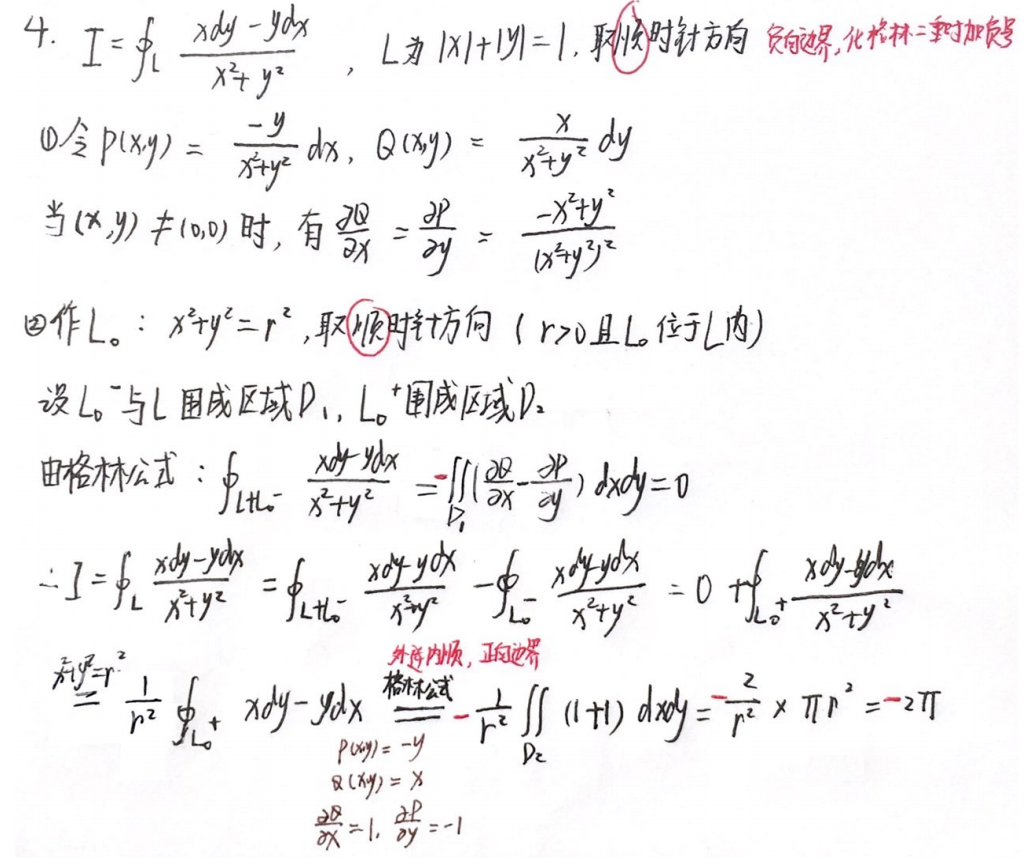 4. I = ∮_L (xdy - ydx)/(x²+y²) , L为 |x|+|y|=1, 取顺时针方向 负向边界,化格林二重时加负号
①令 P(x,y) = -y/(x²+y²) dx, Q(x,y) = x/(x²+y²) dy
当(x,y) ≠ (0,0) 时, 有 ∂Q/∂x = ∂P/∂y = (-x²+y²)/(x²+y²)²
②作L₀: x²+y²=r², 取顺时针方向 (r>0且L₀位于L内)
设L₀⁻与L围成区域D₁, L₀⁺围成区域D₂
由格林公式: ∮_{L+L₀⁻} (xdy-ydx)/(x²+y²) = -∬_{D₁} (∂Q/∂x - ∂P/∂y) dxdy = 0
∴ I = ∮_L (xdy-ydx)/(x²+y²) = ∮_{L+L₀⁻} (xdy-ydx)/(x²+y²) - ∮_{L₀⁻} (xdy-ydx)/(x²+y²) = 0 + ∮_{L₀⁺} (xdy-ydx)/(x²+y²)
外逆内顺, 正向边界
x²+y²=r² = 1/r² ∮_{L₀⁺} xdy-ydx 格林公式 = -1/r² ∬_{D₂} (1+1) dxdy = -2/r² × πr² = -2π
P(x,y) = -y
Q(x,y) = x
∂Q/∂x = 1, ∂P/∂y = -1